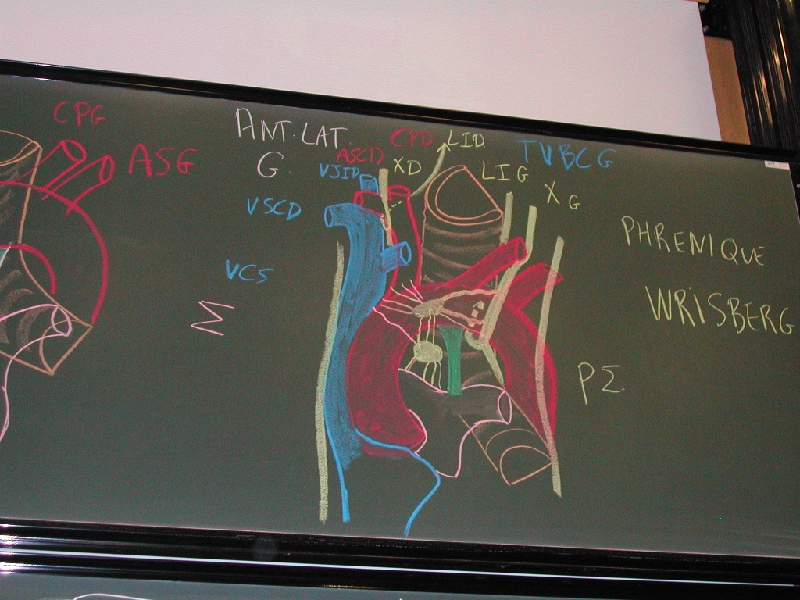 CPG
ASG
ANT. LAT
G.
VJID
ASCD
XD
CPD
LID
LIG
TVBCG
X G
VSCD
VCS
Σ
PHRENIQUE
WRISBERG
PΣ